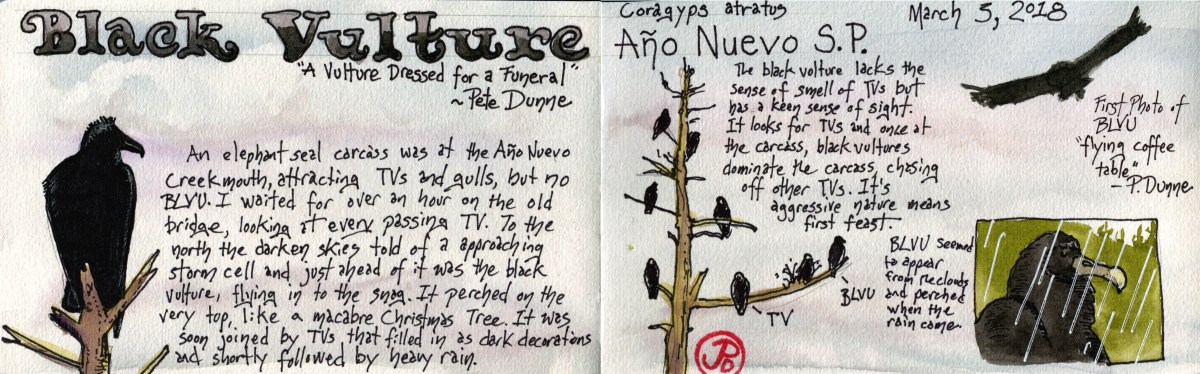 Black Vulture
"A Vulture Dressed for a Funeral"
~ Pete Dunne
An elephant seal carcass was at the Año Nuevo
Creekmouth, attracting TVs and gulls, but no
BLVU. I waited for over an hour on the old
bridge, looking at every passing TV. To the
north the darken skies told of a approaching
storm cell and just ahead of it was the black
vulture, flying in to the snag. It perched on the
very top, like a macabre Christmas Tree. It was
soon joined by TVs that filled in as dark decorations
and shortly followed by heavy rain.
Coragyps atratus
March 5, 2018
Año Nuevo S.P.
The black volture lacks the
sense of smell of TVs but
has a keen sense of sight.
It looks for TVs and once at
the carcass, black vultures
dominate the carcass, chasing
off other TVs. It's
aggressive nature means
first feast.
First Photo of
BLVU
"flying coffee
table"
– P. Dunne
BLVU seemed
to appear
from the clouds
and perched
when the
rain came.
BLVU
TV